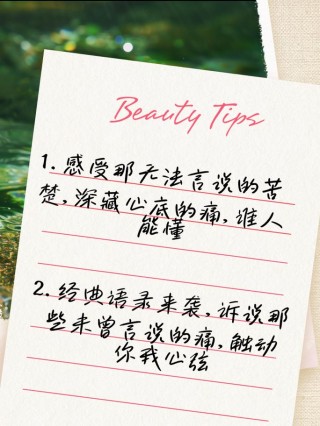 Beauty Tips
1. 感受那无法言说的苦
楚,深藏心底的痛,谁人
能懂
2. 经典语录来袭,诉说那
些未曾言说的痛,触动
你我心弦